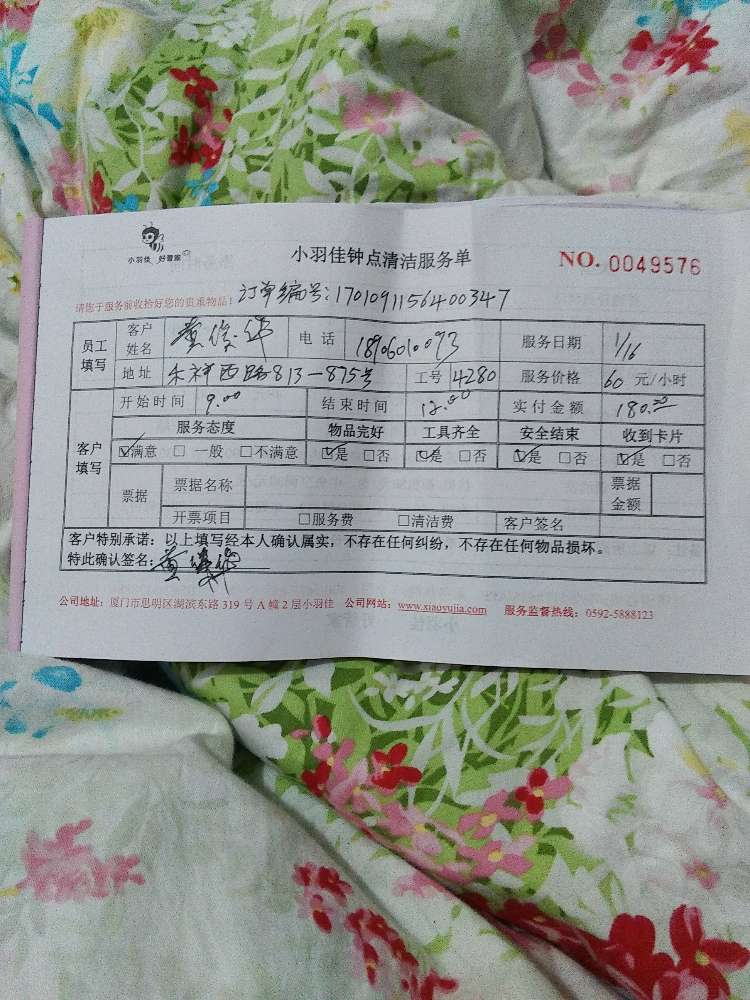 小羽佳 好管家
小羽佳钟点清洁服务单
NO. 0049576
请您于服务前收拾好您的贵重物品！ 订单编号:1701091156400347
员工填写 客户姓名 电话 18906010093 服务日期 1/16
地址 禾祥西路813-875号 工号 4280 服务价格 60 元/小时
客户填写 开始时间 9.00 结束时间 12.00 实付金额 180.00
服务态度 物品完好 工具齐全 安全结束 收到卡片
☑满意 □ 一般 □不满意 ☑是 □否 ☑是 □否 ☑是 □否 ☑是 □否
票据 票据名称 票据金额
开票项目 □服务费 □清洁费 客户签名
客户特别承诺：以上填写经本人确认属实，不存在任何纠纷，不存在任何物品损坏。
特此确认签名：
公司地址：厦门市思明区湖滨东路 319 号 A 幢 2 层小羽佳 公司网站：www.xiaoyujia.com 服务监督热线：0592-5888123